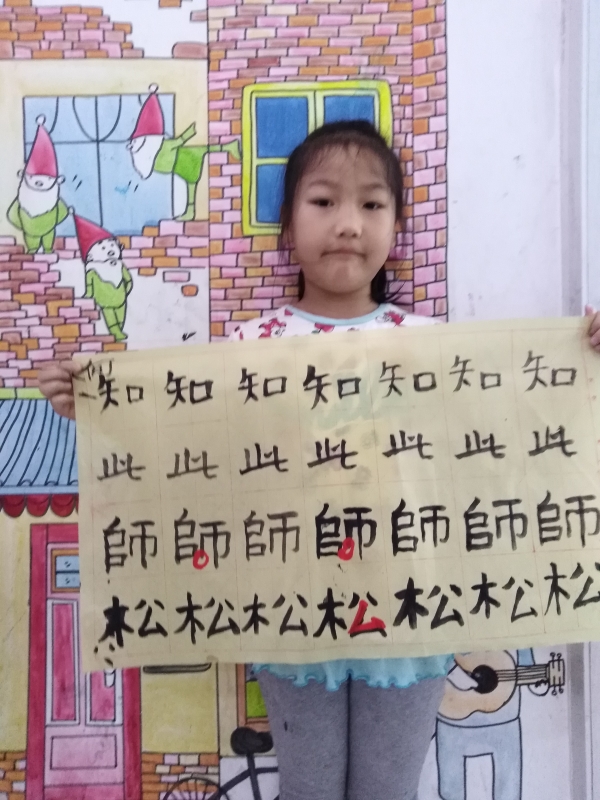 知知知知知知知
此此此此此此此
師師師師師師師
松松松松松松松